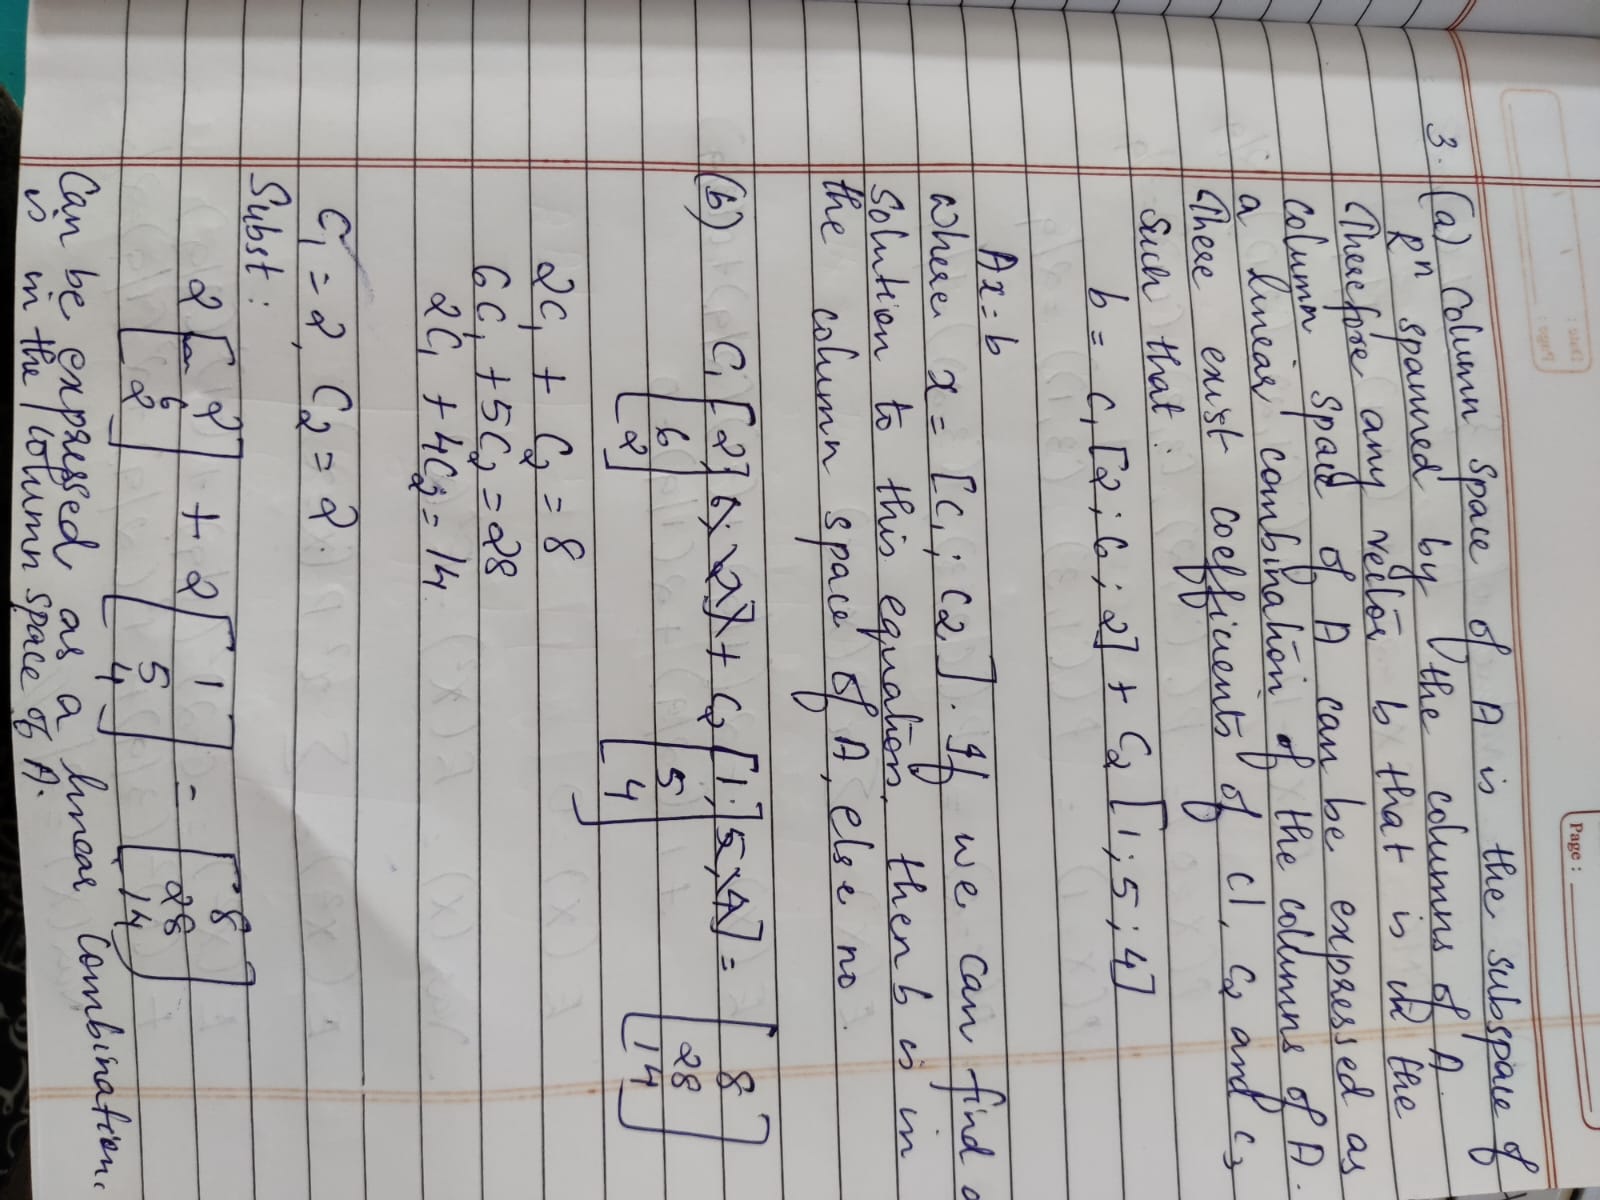 Page :
3. (a) Column space of A is the subspace of
Rⁿ spanned by the columns of A.
Therefore any vector b that is in the
column space of A can be expressed as
a linear combination of the columns of A.
There exist coefficients of c1, c2 and c3
such that:
b = c₁ [2; 6; 2] + C₂ [1; 5; 4]
Ax = b
where x = [c₁; c2]. If we can find a
solution to this equation, then b is in
the column space of A, else no.
(b) C₁ [2 6 2] + C₂ [1 5 4] = [8 28 14]
2C₁ + C₂ = 8
6C₁ + 5C₂ = 28
2C₁ + 4C₂ = 14.
C₁ = 2, C₂ = 2.
Subst :
2 [2 6 2] + 2 [1 5 4] = [8 28 14]
Can be expressed as a linear combination.
is in the column space of A.